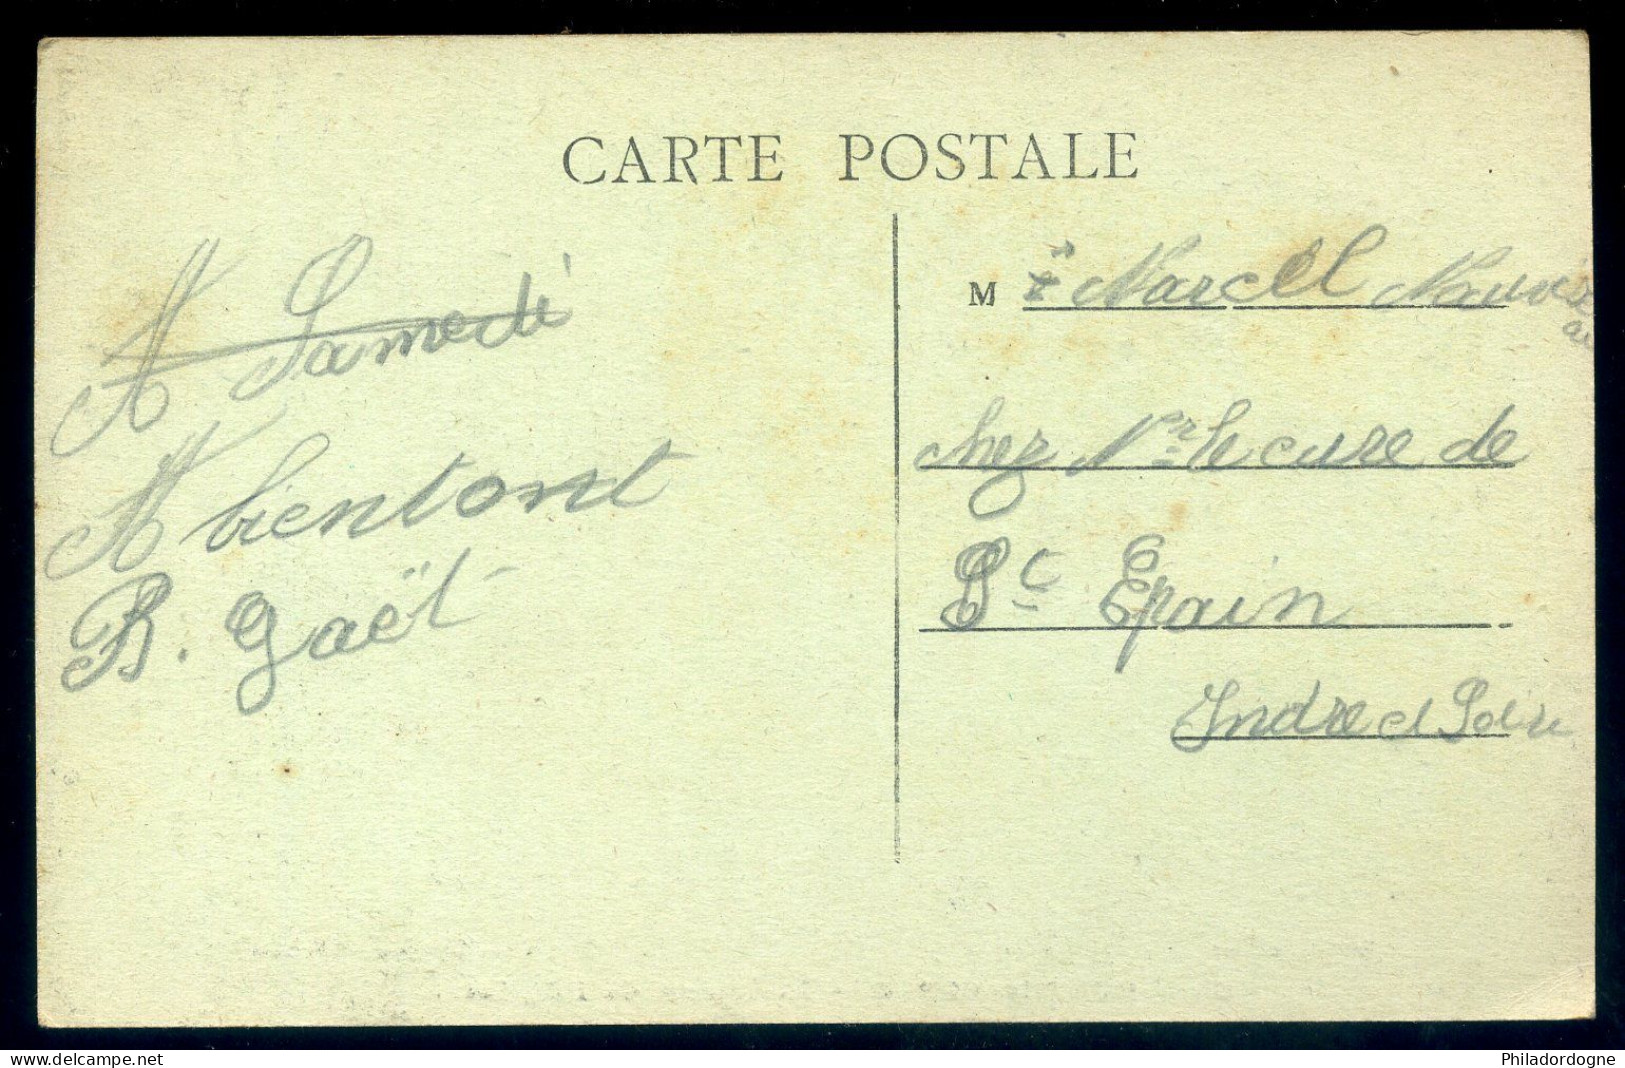 CARTE POSTALE
A Samedi
A bientont
B. Gaët
M r Marcel
chez Mr le cure de
St Epain
Indre et Loire
delcampe.net
Philadordogne